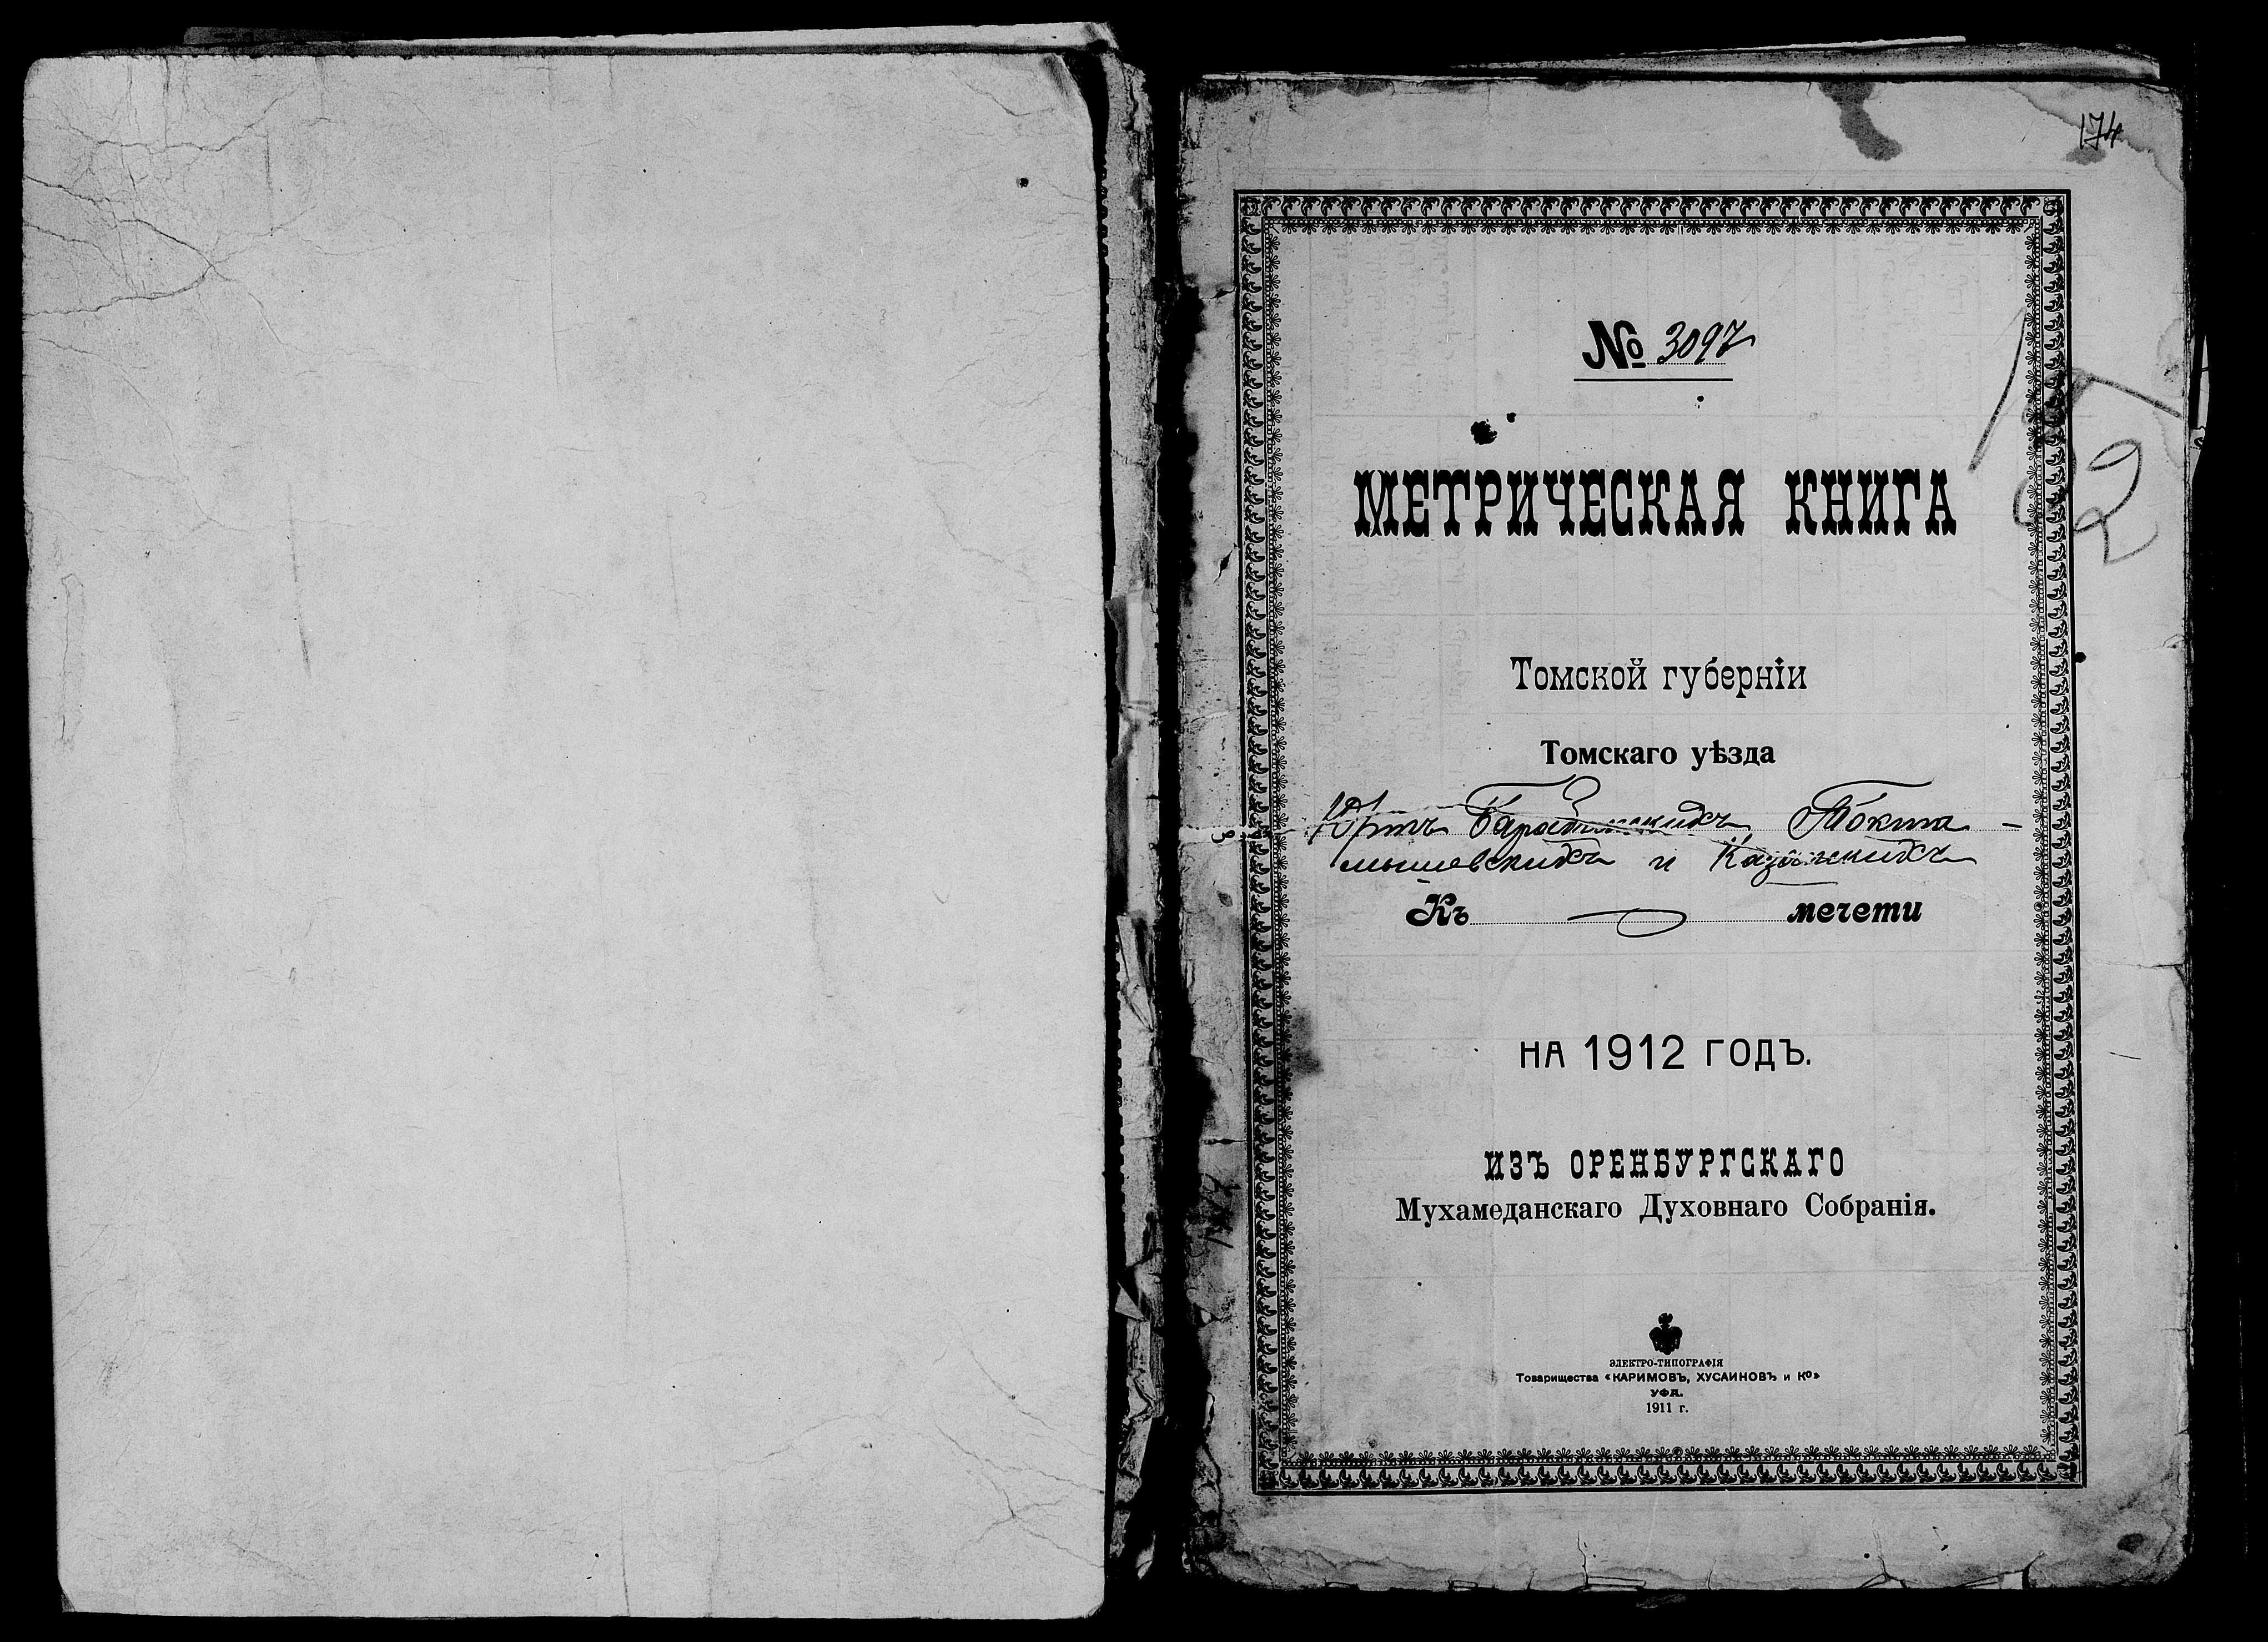 174
№ 3097
МЕТРИЧЕСКАЯ КНИГА
Томской губерніи
Томскаго уѣзда
Юртъ Барабинскихъ, Токта-
мышевскихъ и Казанскихъ
Къ мечети
НА 1912 ГОДЪ.
ИЗЪ ОРЕНБУРГСКАГО
Мухамеданскаго Духовнаго Собранія.
ЭЛЕКТРО-ТИПОГРАФІЯ
Товарищества «КАРИМОВЪ, ХУСАИНОВЪ и Ко»
УФА.
1911 г.